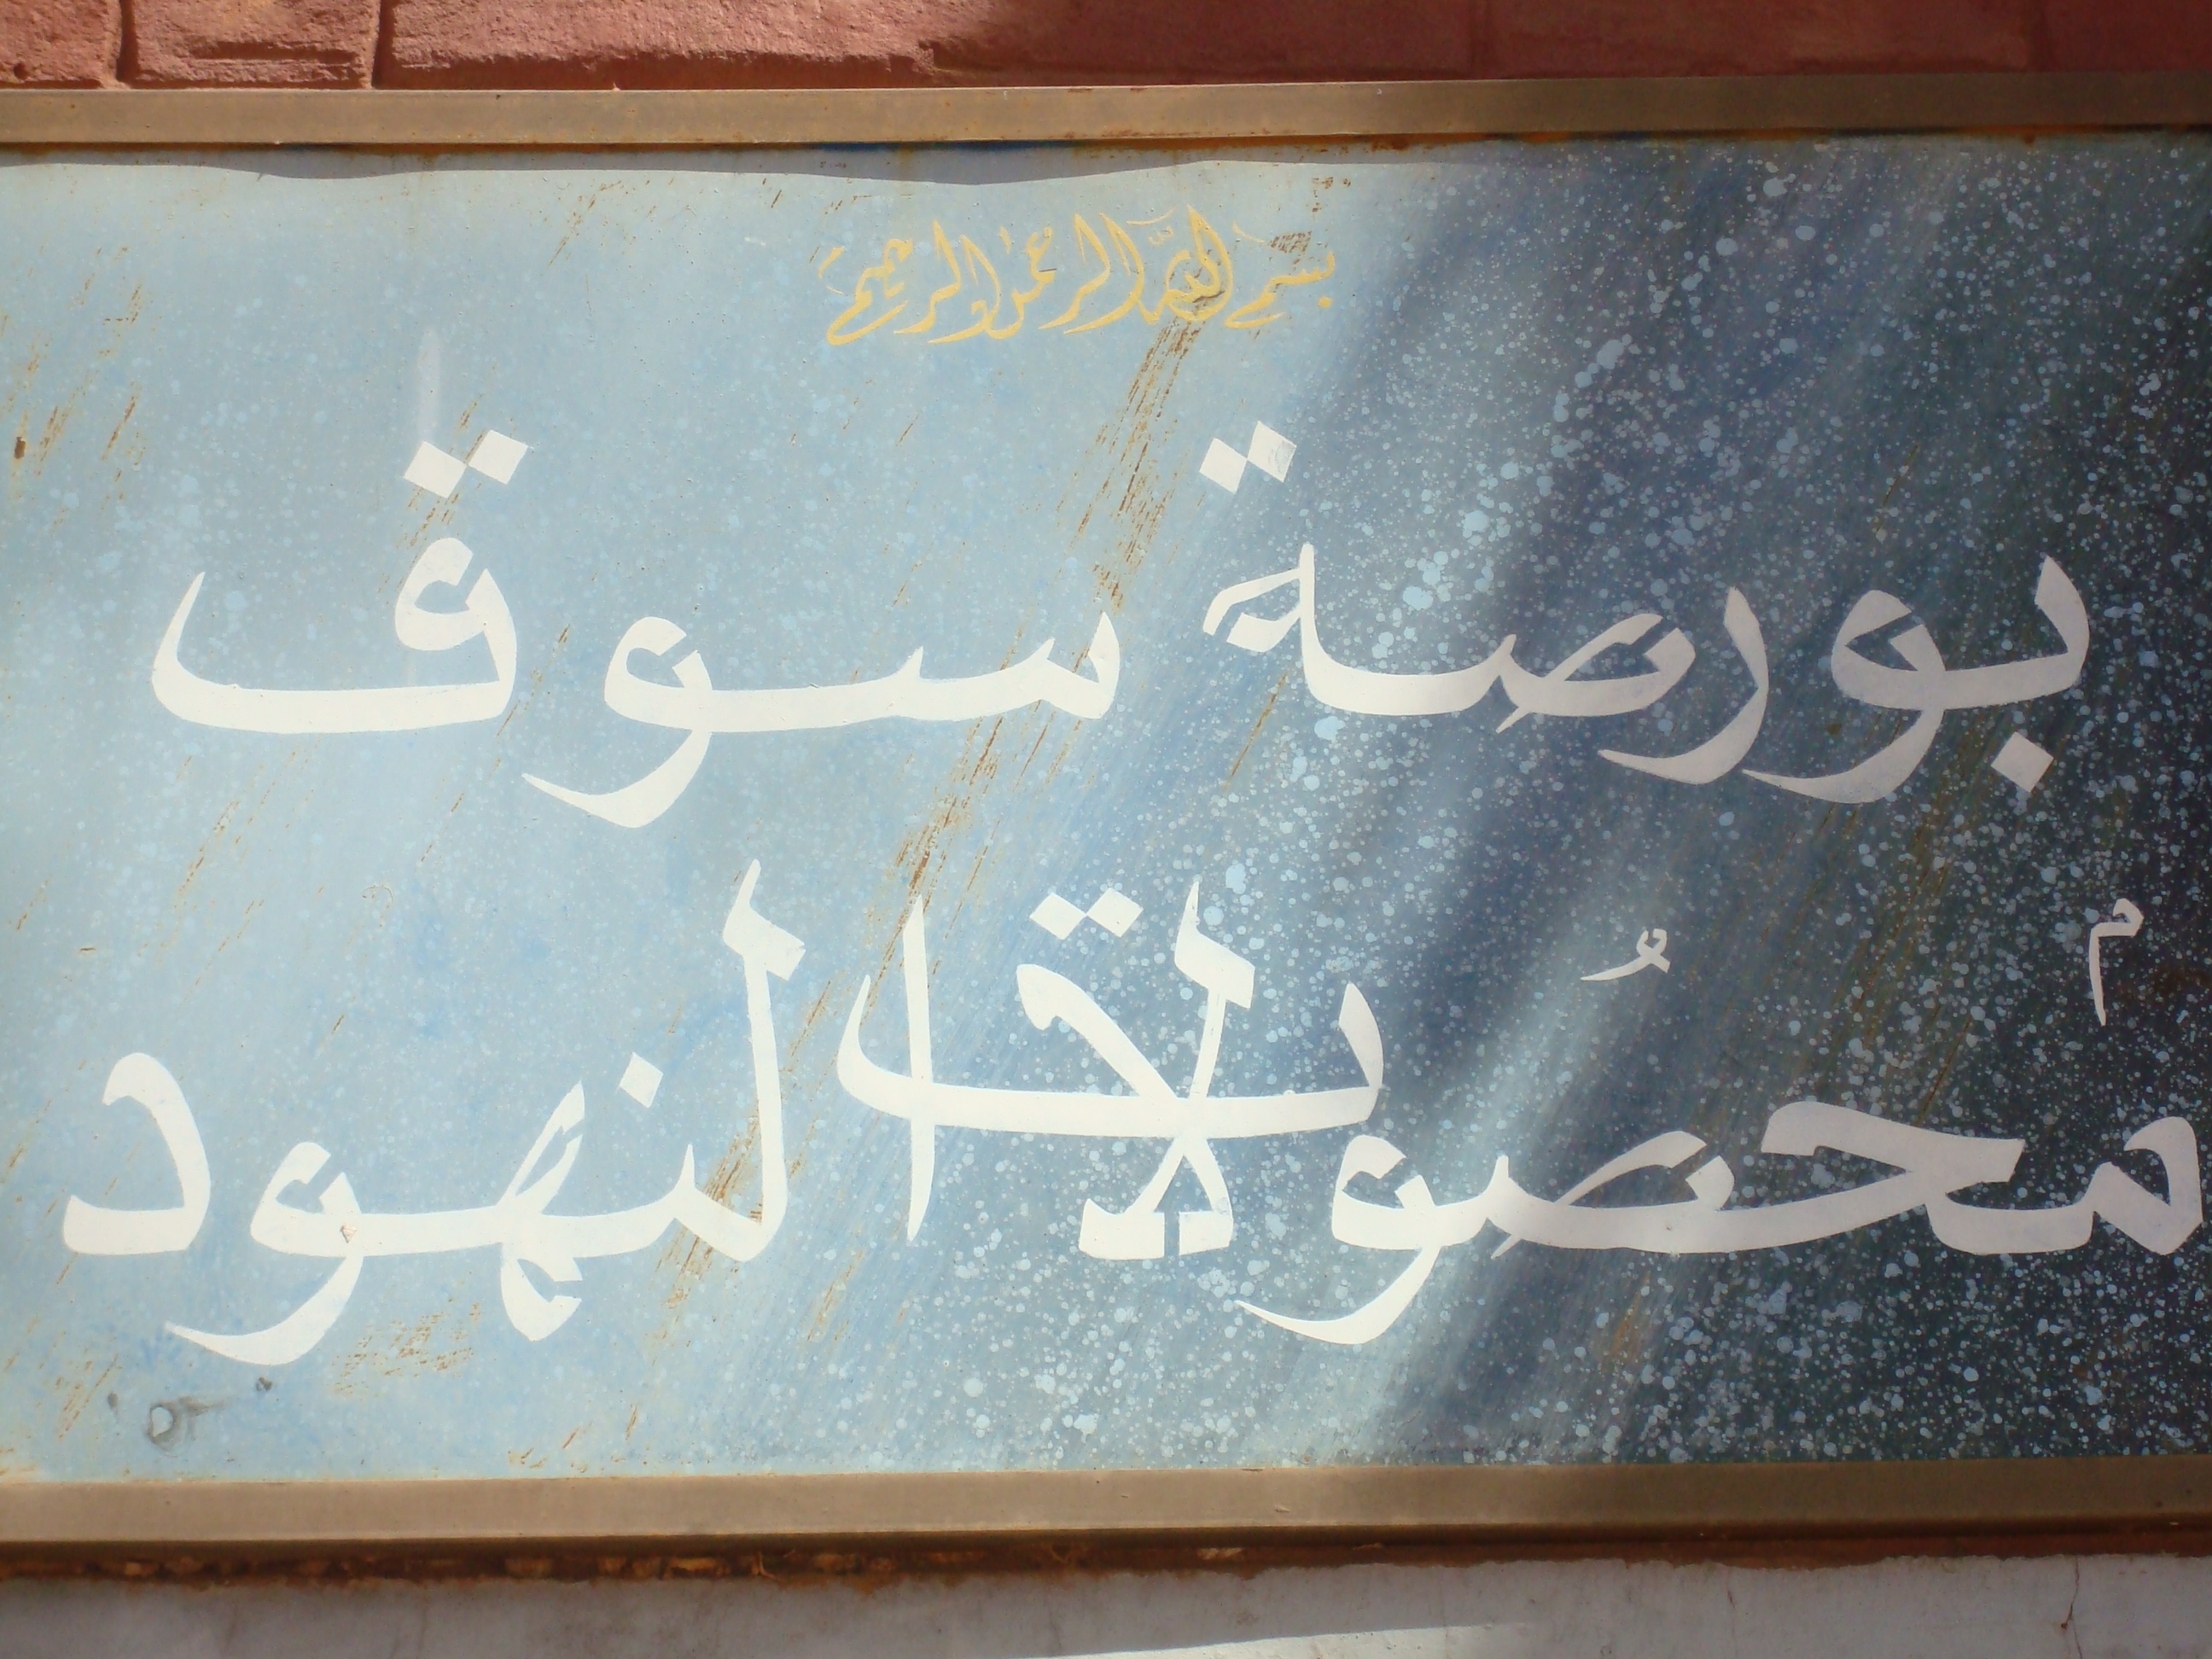 بسم الله الرحمن الرحيم
بورصة سوق
محصولات النهود